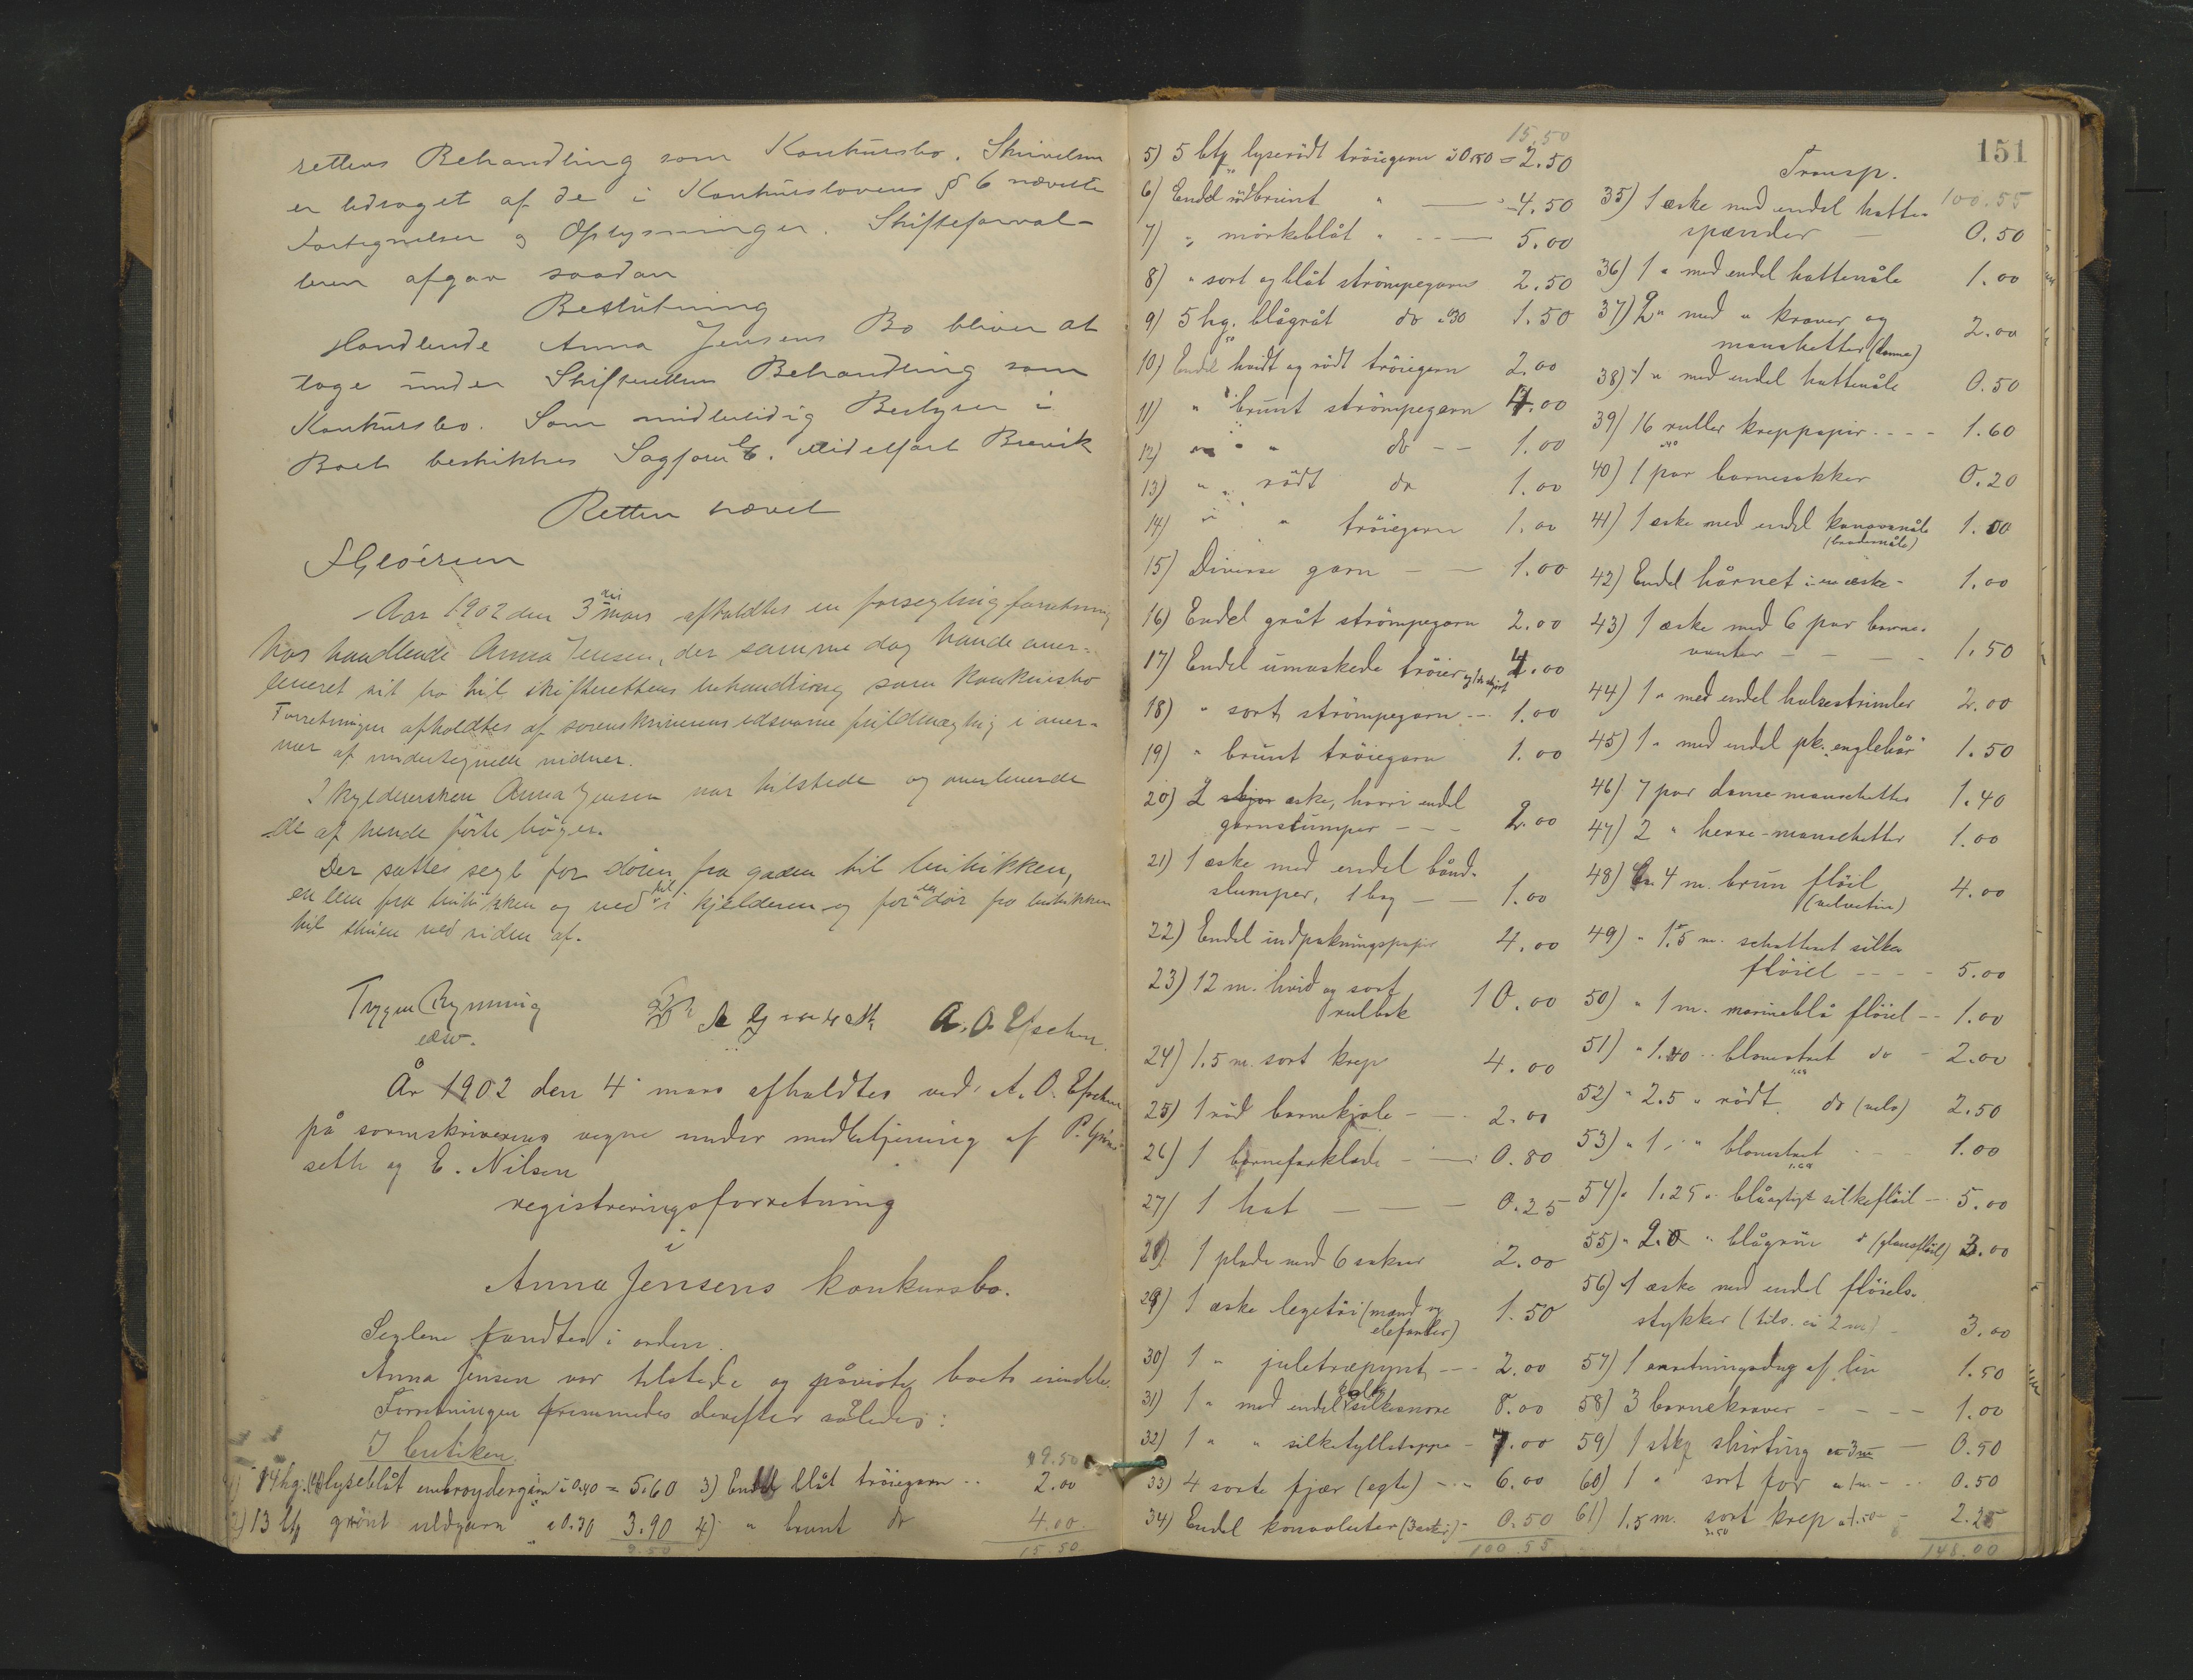 rettens Behandling som Konkursbo. Skrivelsen
er ledsaget af de i Konkurslovens § 6 nævnte
Fortegnelser og Oplysninger. Skifteforval-
teren afgav saadan
Beslutning
Handlende Anna Jensens Bo bliver at
tage under Skifterettens Behandling som
Konkursbo. Som midlertidig Bestyrer i
Boet beskikkes Sagfører E. Midelfart Brevik
Retten hævet
Aar 1902 den 3die mars afholdtes en forseglingsforretning
hos handlende Anna Jensen, der samme dag havde over-
leveret sit bo til skifterettens behandling som konkursbo
Forretningen afholdtes af sorenskriverens edsvorne fuldmægtig i over-
vær af undertegnede vidner.
Skyldnersken Anna Jensen var tilstede og overleverede
de af hende førte bøger.
Der sattes segl for døren fra gaden til butikken,
en lem fra butikken og ned til i kjelderen og for en dør fra butikken
til stuen ved siden af.
Trygve Rynning
edsv.
A. O. Efschen
År 1902 den 4 mars afholdtes ved A. O. Efschen
på sorenskriverens vegne under medbetjening af P. Grini
seth og E. Nilsen
registreringsforretning
i
Anna Jensens konkursbo.
Seglene fandtes i orden.
Anna Jensen var tilstede og påviste boets eiendele.
Forretningen fremmedes derefter således:
I butiken.
1) 14 hg. lyseblåt embroydergarn à 0.40 = 5.60
2) 13 hg grønt uldgarn à 0.30 3.90
9.50
9.50
3) Endel blåt trøiegarn 2.00
4) " brunt do 4.00
15.50
15.50
5) 5 hg lyserødt trøiegarn à 0.50 = 2.50
6) Endel rødbrunt " 4.50
7) " mørkeblåt " 5.00
8) " sort og blåt strømpegarn 2.50
9) 5 hg. blågråt do à 30 1.50
10) Endel hvidt og rødt trøiegarn 2.00
11) " brunt strømpegarn 4.00
12) " " do 1.00
13) " rødt do 1.00
14) " " trøiegarn 1.00
15) Diverse garn 1.00
16) Endel gråt strømpegarn 2.00
17) Endel umaskede trøier 4.00
18) " sort strømpegarn 1.00
19) " brunt trøiegarn 1.00
20) 2 æske, hvori endel
garnstumper 2.00
21) 1 æske med endel bånd-
stumper, 1 bog 1.00
22) Endel indpakningspapir 4.00
23) 12 m. hvid og sort
10.00
24) 1.5 m. sort krep 4.00
25) 1 rød barnekjole 2.00
26) 1 barneforklæde 0.80
27) 1 hat 0.25
28) 1 plade med 6 sakser 2.00
29) 1 æske legetøi (mænd og
elefanter) 1.50
30) 1 " juletræpynt 2.00
31) 1 " med endel silkesnore 8.00
32) 1 " " silketyllstoppe 7.00
33) 4 sorte fjær (egte) 6.00
34) Endel konvoluter (3 æsker) 0.50
100.55
151
Transp.
100.55
35) 1 æske med endel hatte-
spænder 0.50
36) 1 " med endel hattenåle 1.00
37) 2 " med " kraver og
manchetter (dame) 2.00
38) 1 " med endel hattenåle 0.50
39) 16 ruller kreppapir 1.60
40) 1 par barnesokker 0.20
41) 1 æske med endel kanavanåle 1.00
42) Endel hårnet i en æske 1.00
43) 1 æske med 6 par barne-
vanter 1.50
44) 1 " med endel halsestrimler 2.00
45) 1 " med endel pk. englehår 1.50
46) 7 par dame-manschetter 1.40
47) 2 " herre-manschetter 1.00
48) Ca. 4 m. brun fløil
(velvetin) 4.00
49) " 1.5 m. schatteret silke
fløiel 5.00
50) " 1 m. marineblå fløiel 1.00
51) " 1.40 " blomstret do 2.00
52) " 2.5 " rødt do (velv) 2.50
53) " 1 " blomstret 1.00
54) " 1.25 " blåagtigt silkefløil 5.00
55) " 2.0 " blågrøn d (glansfløil) 3.00
56) 1 æske med endel fløiels-
stykker (tils. ca 2 m) 3.00
57) 1 anretningsdug af lin 1.50
58) 3 barnekraver 1.00
59) 1 stk shirting ca 3 m 0.50
60) 1 " sort for 0.50
61) 1.5 m. sort krep à 1.50 2.25
148.00